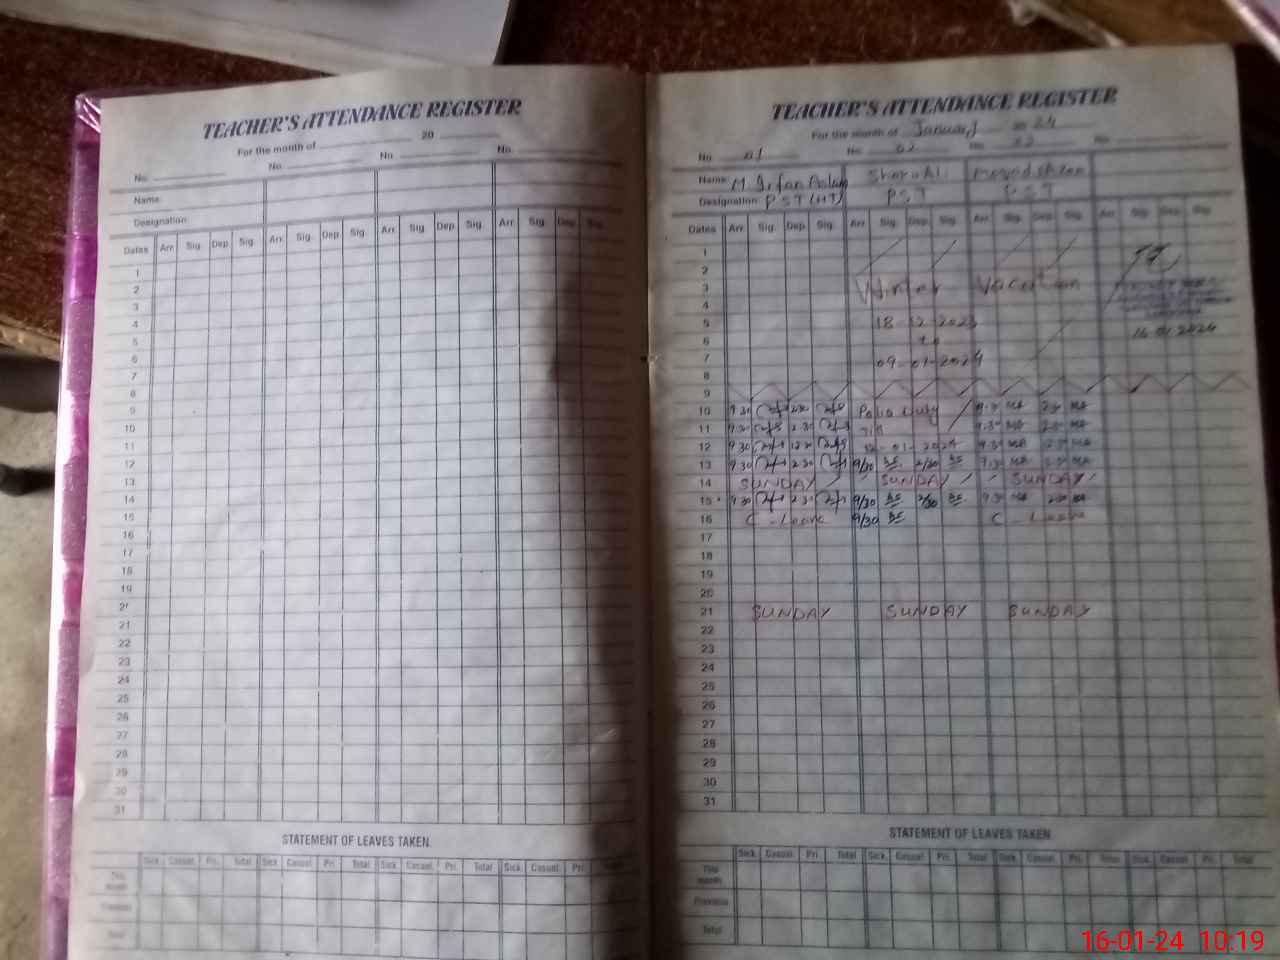 TEACHER'S ATTENDANCE REGISTER
For the month of 20
No. No. No. No.
Name:
Designation:
Dates Arr. Sig. Dep. Sig. Arr. Sig. Dep. Sig. Arr. Sig. Dep. Sig. Arr. Sig. Dep. Sig.
1
2
3
4
5
6
7
8
9
10
11
12
13
14
15
16
17
18
19
20
21
22
23
24
25
26
27
28
29
30
31
STATEMENT OF LEAVES TAKEN
Sick. Casual. Pri. Total Sick. Casual. Pri. Total Sick. Casual. Pri. Total Sick. Casual. Pri.
This month
Previous
Total
TEACHER'S ATTENDANCE REGISTER
For the month of January 2024
No. 01 No. 02 No. 03 No.
Name: M Irfan Aslam Sher Ali
Designation: PST (HT) PST PST
Dates Arr. Sig. Dep. Sig. Arr. Sig. Dep. Sig. Arr. Sig. Dep. Sig. Arr. Sig. Dep. Sig.
1
2
3 Winter Vacation
4
5 18-12-2023 16-01-2024
6 to
7 09-01-2024
8
9
10 9.30 2.30 Polio Duty 9.30 MA 2.30 MA
11 9.30 2.30 Till 9.30 MA 2.30 MA
12 9.30 12.30 12-01-2024 9.30 MA 12.30 MA
13 9.30 2.30 9/30 2/30 9.30 MA 2.30 MA
14 SUNDAY SUNDAY SUNDAY
15 9.30 2.30 9/30 2/30 9.30 MA 2.30 MA
16 C-Leave 9/30 C-Leave
17
18
19
20
21 SUNDAY SUNDAY SUNDAY
22
23
24
25
26
27
28
29
30
31
STATEMENT OF LEAVES TAKEN
Sick. Casual. Pri. Total Sick. Casual. Pri. Total Sick. Casual. Pri. Total Sick. Casual. Pri. Total
This month
Previous
Total
16-01-24 10:19